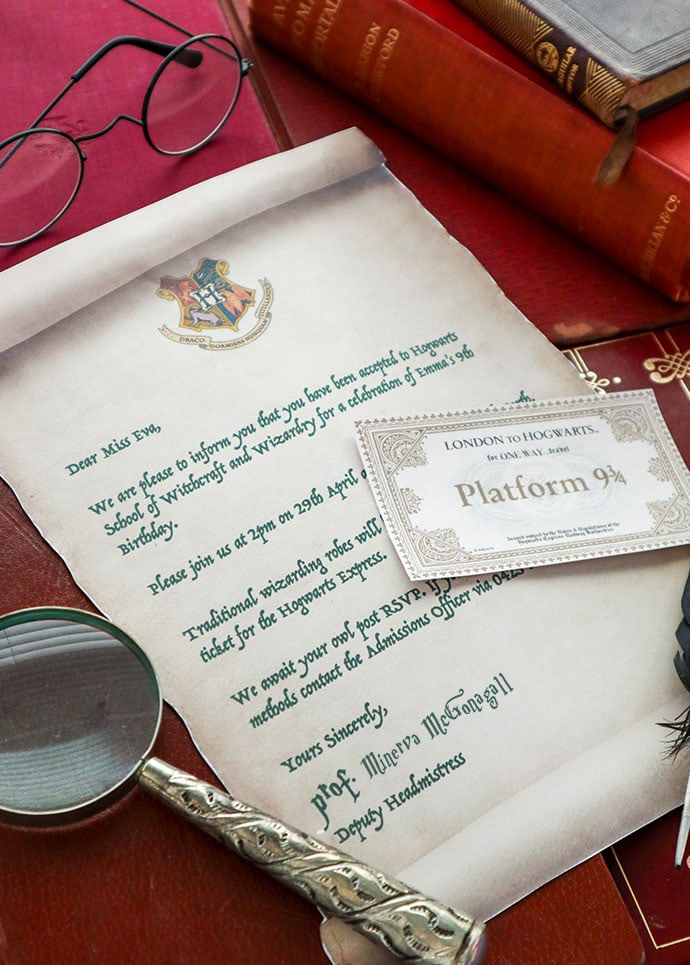 AGUILAR
EDITOR
MORTAL
MILLAN & CO.
DRACO DORMIENS NUNQUAM TITILLANDUS
Dear Miss Eva,
We are please to inform you that you have been accepted to Hogwarts
School of Witchcraft and Wizardry for a celebration of Emma's 9th
Birthday.
Please join us at 2pm on 29th April
Traditional wizarding robes will
ticket for the Hogwarts Express.
We await your owl post RSVP. If
methods contact the Admissions Officer via 042
Yours Sincerely,
prof. Minerva McGonagall
Deputy Headmistress
LONDON TO HOGWARTS
for ONE WAY travel
Platform 9¾
Issued subject to the Rules & Regulations of the
Hogwarts Express Railway Authorities